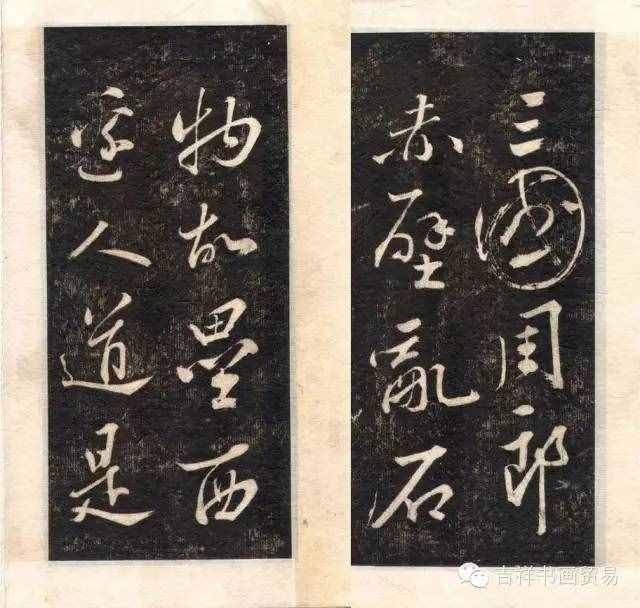 物故壘西
邊人道是
三國周郎
赤壁亂石
吉祥书画贸易